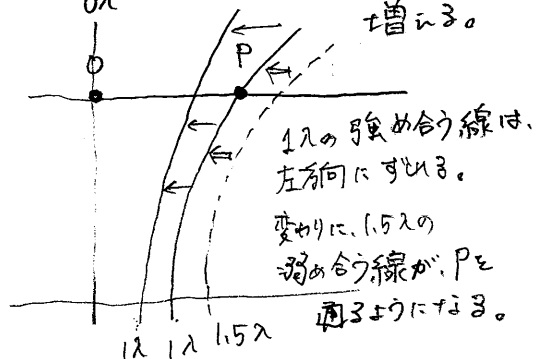 0λ
増える。
O
P
1λの強め合う線は、
左方向にずれる。
変わりに、1.5λの
弱め合う線が、Pを
通るようになる。
1λ 1λ 1.5λ